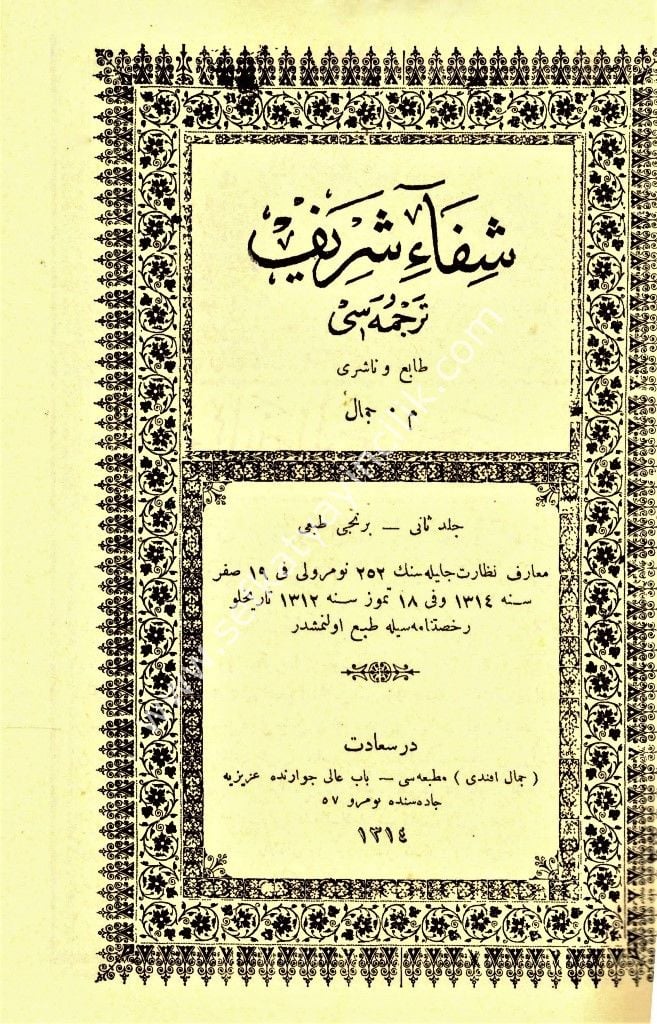 شِفَآءِ شَرِيفْ
تَرْجُمَه‌سِى
طابع و ناشرى
م . جمال
جلد ثانى — برنجى طبعى
معارف نظارت جليله‌سنك ٢٥٢ نومرولى فى ١٩ صفر
سنه ١٣١٤ وفى ١٨ تموز سنه ١٣١٢ تاريخلو
رخصتنامه‌سيله طبع اولنمشدر
در سعادت
( جمال افندى ) مطبعه‌سى — باب عالى جوارنده عزيزيه
جاده‌سنده نومرو ٥٧
١٣١٤